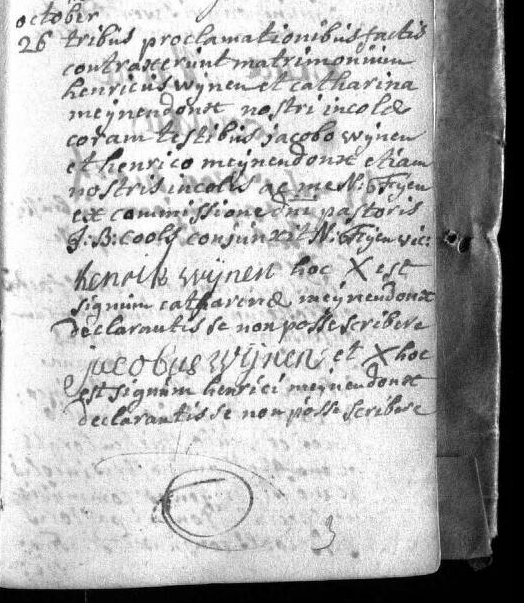 october
26 tribus proclamationibus factis
contraxerunt matrimonium
henricus wijnen et catharina
meijnendonx nostri incolæ
coram testibus jacobo wijnen
et henrico meijnendonx etiam
nostris incolis ac me N: Feyen
ex commissione dni pastoris
J: B: Cools conjunxit N: Feyen vic:
henrik wijnen hoc X est
signum catharinæ meijnendonx
declarantis se non posse scribere
jacobus wijnen et X hoc
est signum henrici meijnendonx
declarantis se non posse scribere
3